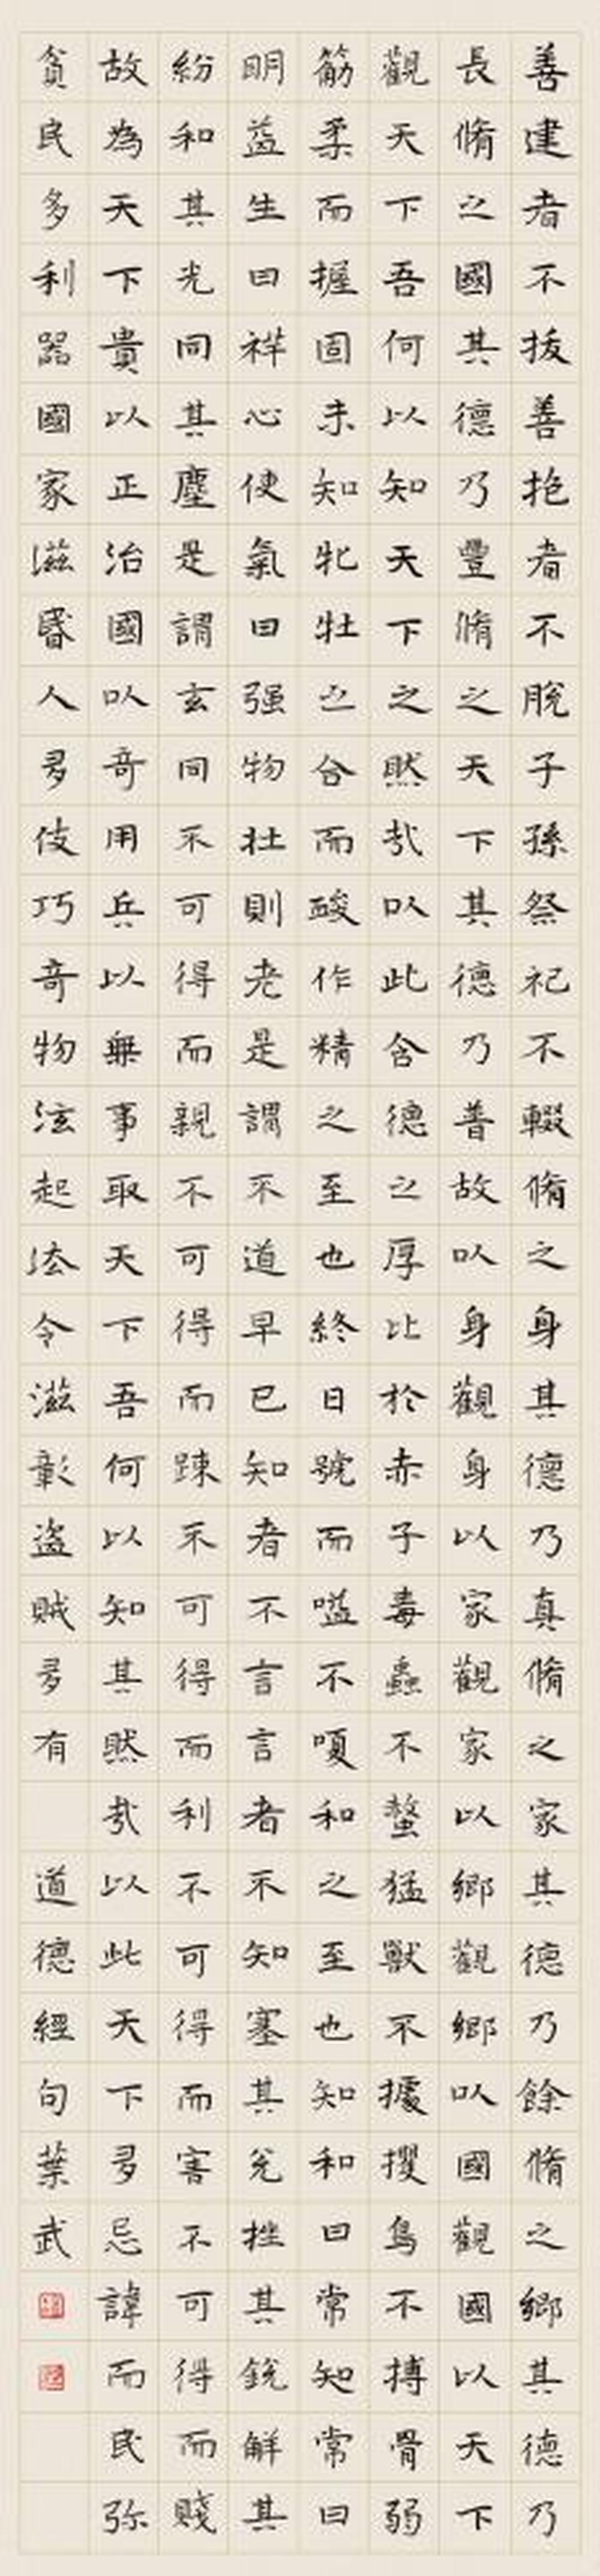 善建者不拔善抱者不脫子孫祭祀不輟脩之身其德乃真脩之家其德乃餘脩之鄉其德乃
長脩之國其德乃豐脩之天下其德乃普故以身觀身以家觀家以鄉觀鄉以國觀國以天下
觀天下吾何以知天下之然哉以此含德之厚比於赤子毒蟲不螫猛獸不據攫鳥不搏骨弱
筋柔而握固未知牝牡之合而酸作精之至也終日號而嗌不嗄和之至也知和曰常知常曰
明益生曰祥心使氣曰强物壯則老是謂不道早已知者不言言者不知塞其兌挫其銳解其
紛和其光同其塵是謂玄同不可得而親不可得而踈不可得而利不可得而害不可得而賤
故為天下貴以正治國以奇用兵以無事取天下吾何以知其然哉以此天下多忌諱而民弥
貧民多利器國家滋昬人多伎巧奇物泫起法令滋彰盗賊多有 道德經句葉武